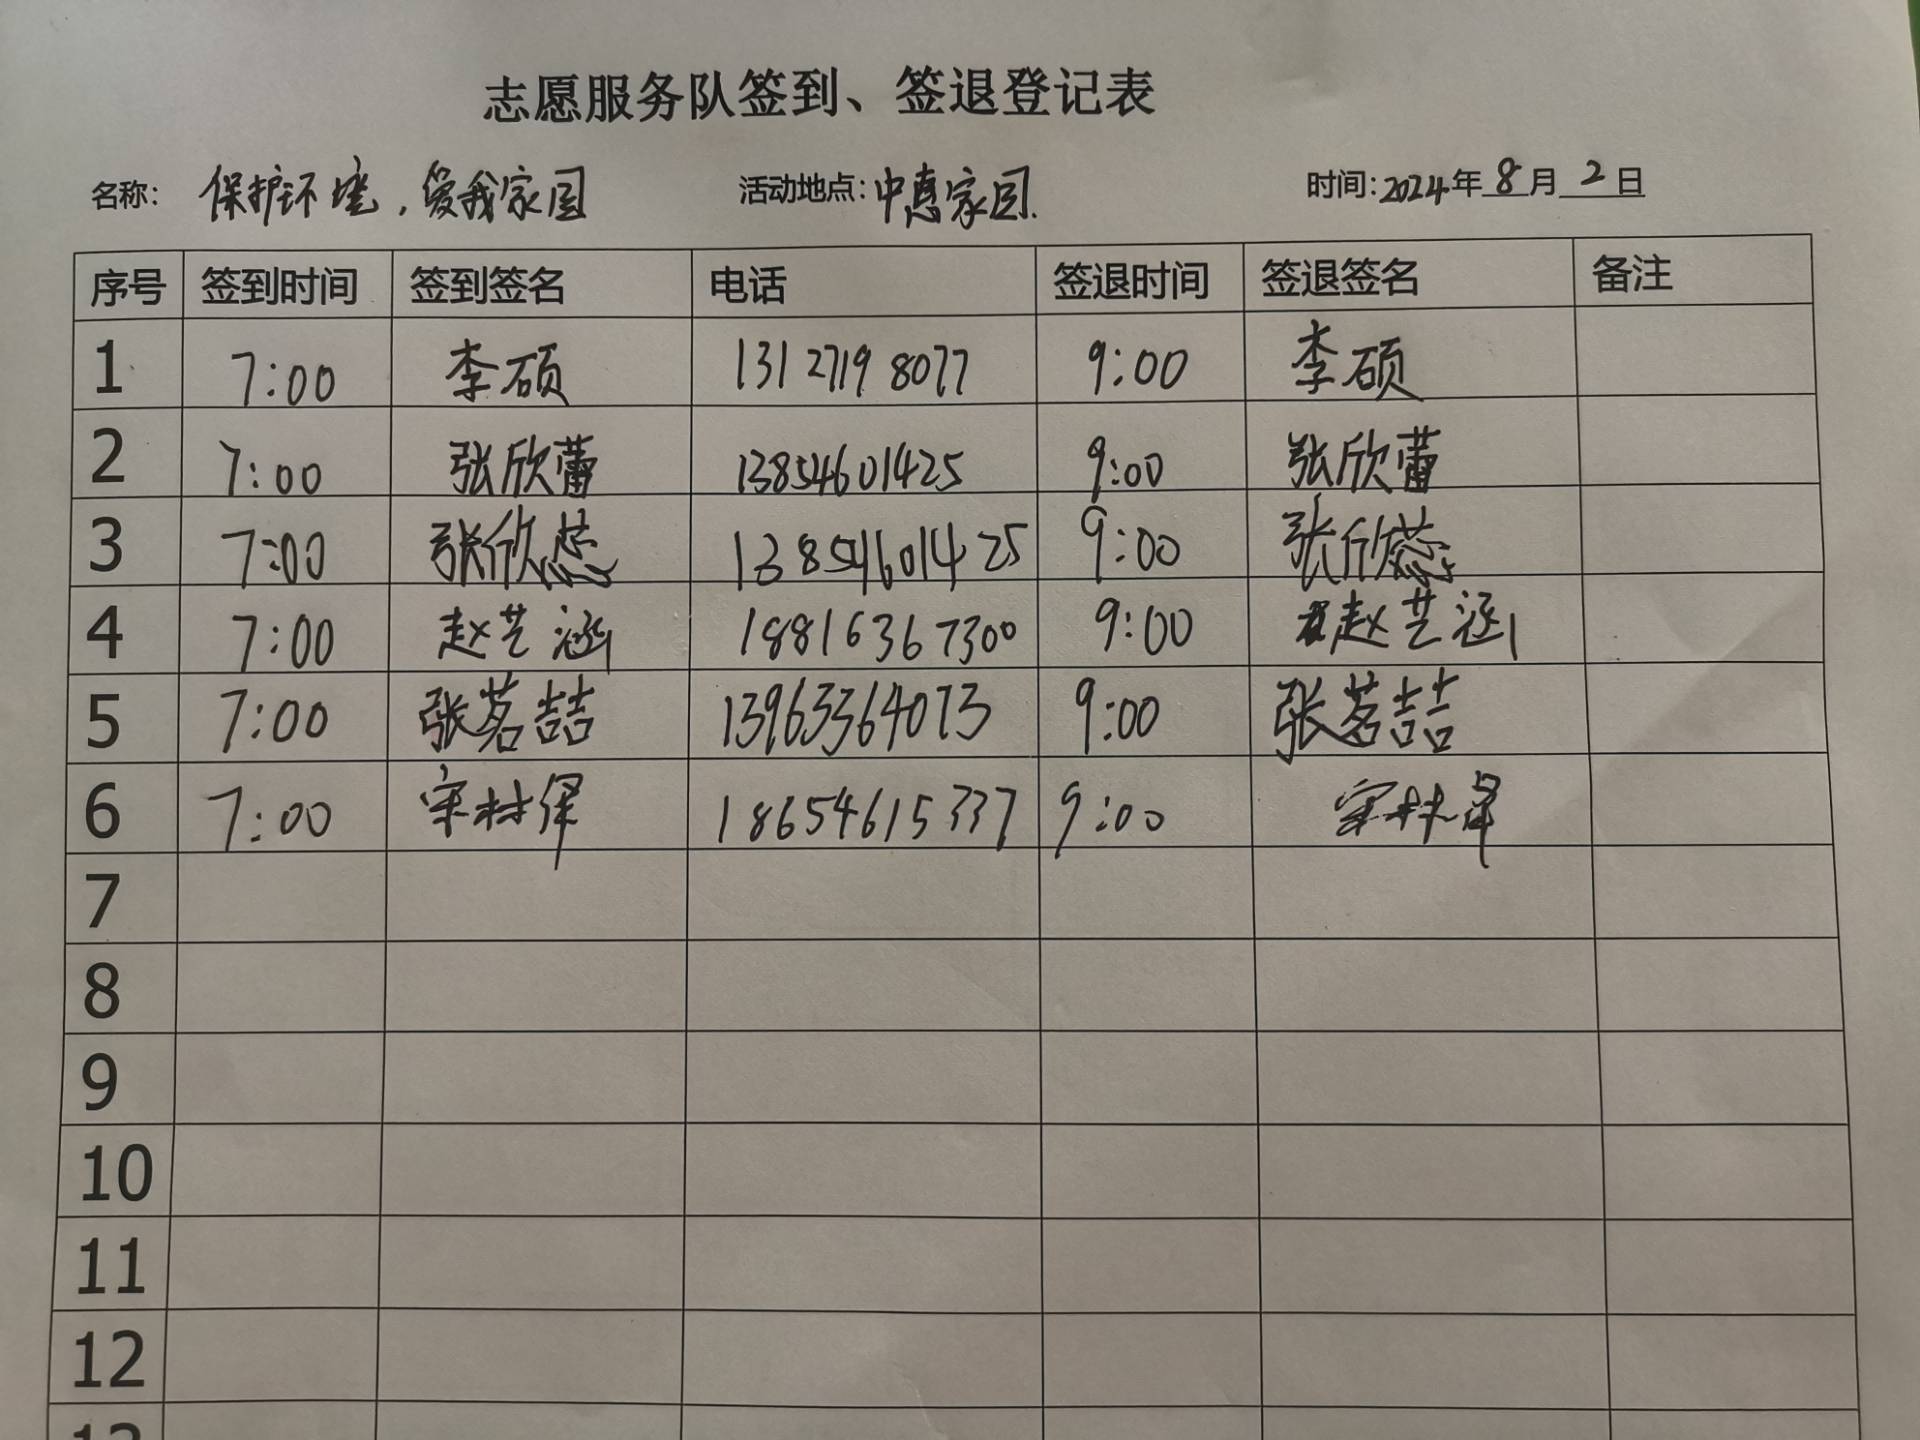 志愿服务队签到、签退登记表
名称： 保护环境，爱我家园 活动地点：中惠家园. 时间：2024年 8 月 2 日
序号 签到时间 签到签名 电话 签退时间 签退签名 备注
1 7:00 李硕 13127198077 9:00 李硕
2 7:00 张欣蕾 13854601425 9:00 张欣蕾
3 7:00 张欣蕊 13854601425 9:00 张欣蕊
4 7:00 赵艺涵 18816367300 9:00 赵艺涵
5 7:00 张茗喆 13963364073 9:00 张茗喆
6 7:00 宋林泽 18654615337 9:00 宋林泽
7
8
9
10
11
12
13